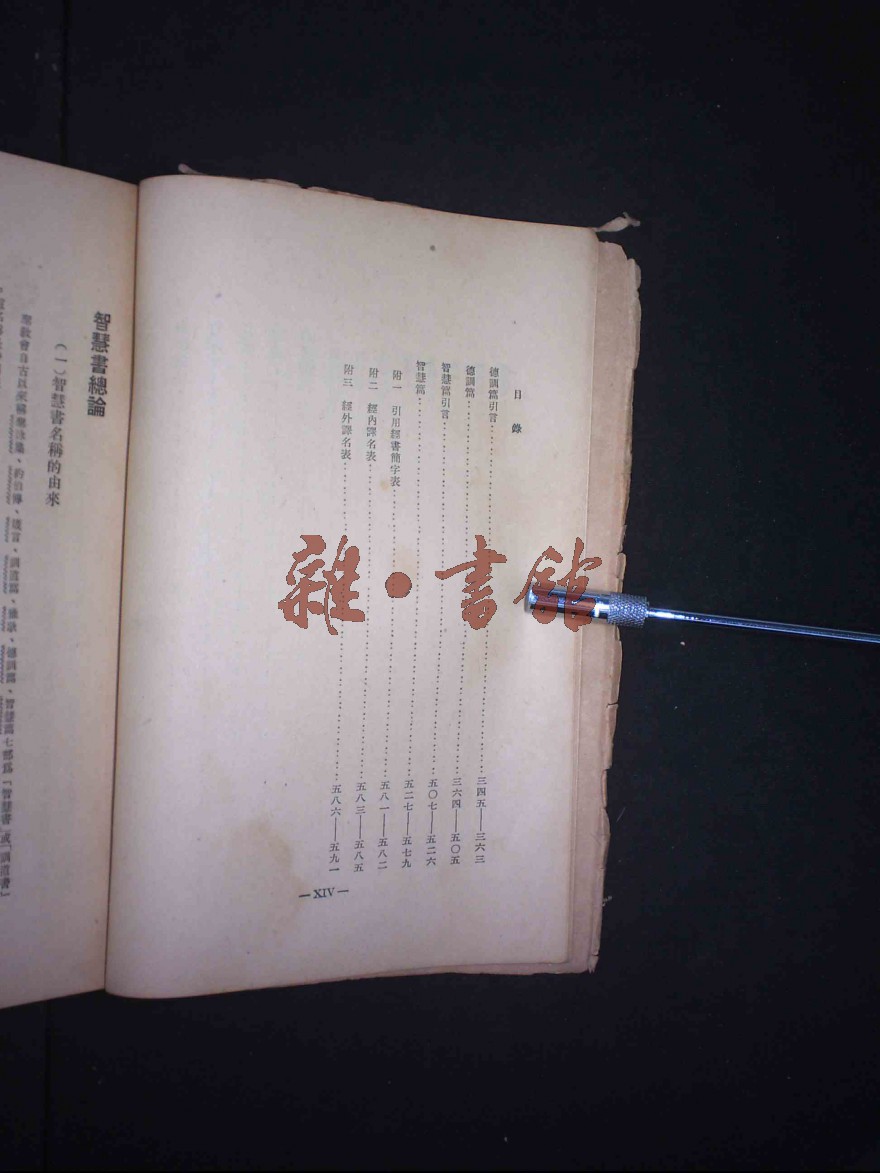 目錄
德訓篇引言 三四五——三六三
德訓篇 三六四——五〇五
智慧篇引言 五〇七——五二六
智慧篇 五二七——五七九
附一 引用經書簡字表 五八一——五八二
附二 經內譯名表 五八三——五八五
附三 經外譯名表 五八六——五九一
—XIV—
智慧書總論
(一)智慧書名稱的由來
聖教會自古以來稱聖詠集、約伯傳、箴言、訓道篇、雅歌、德訓篇、智慧篇七部爲「智慧書」或「訓道書」
雜·書館